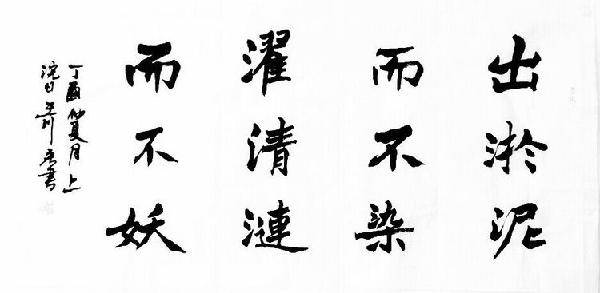 出淤泥
而不染
濯清漣
而不妖
丁酉夏月上
浣日書